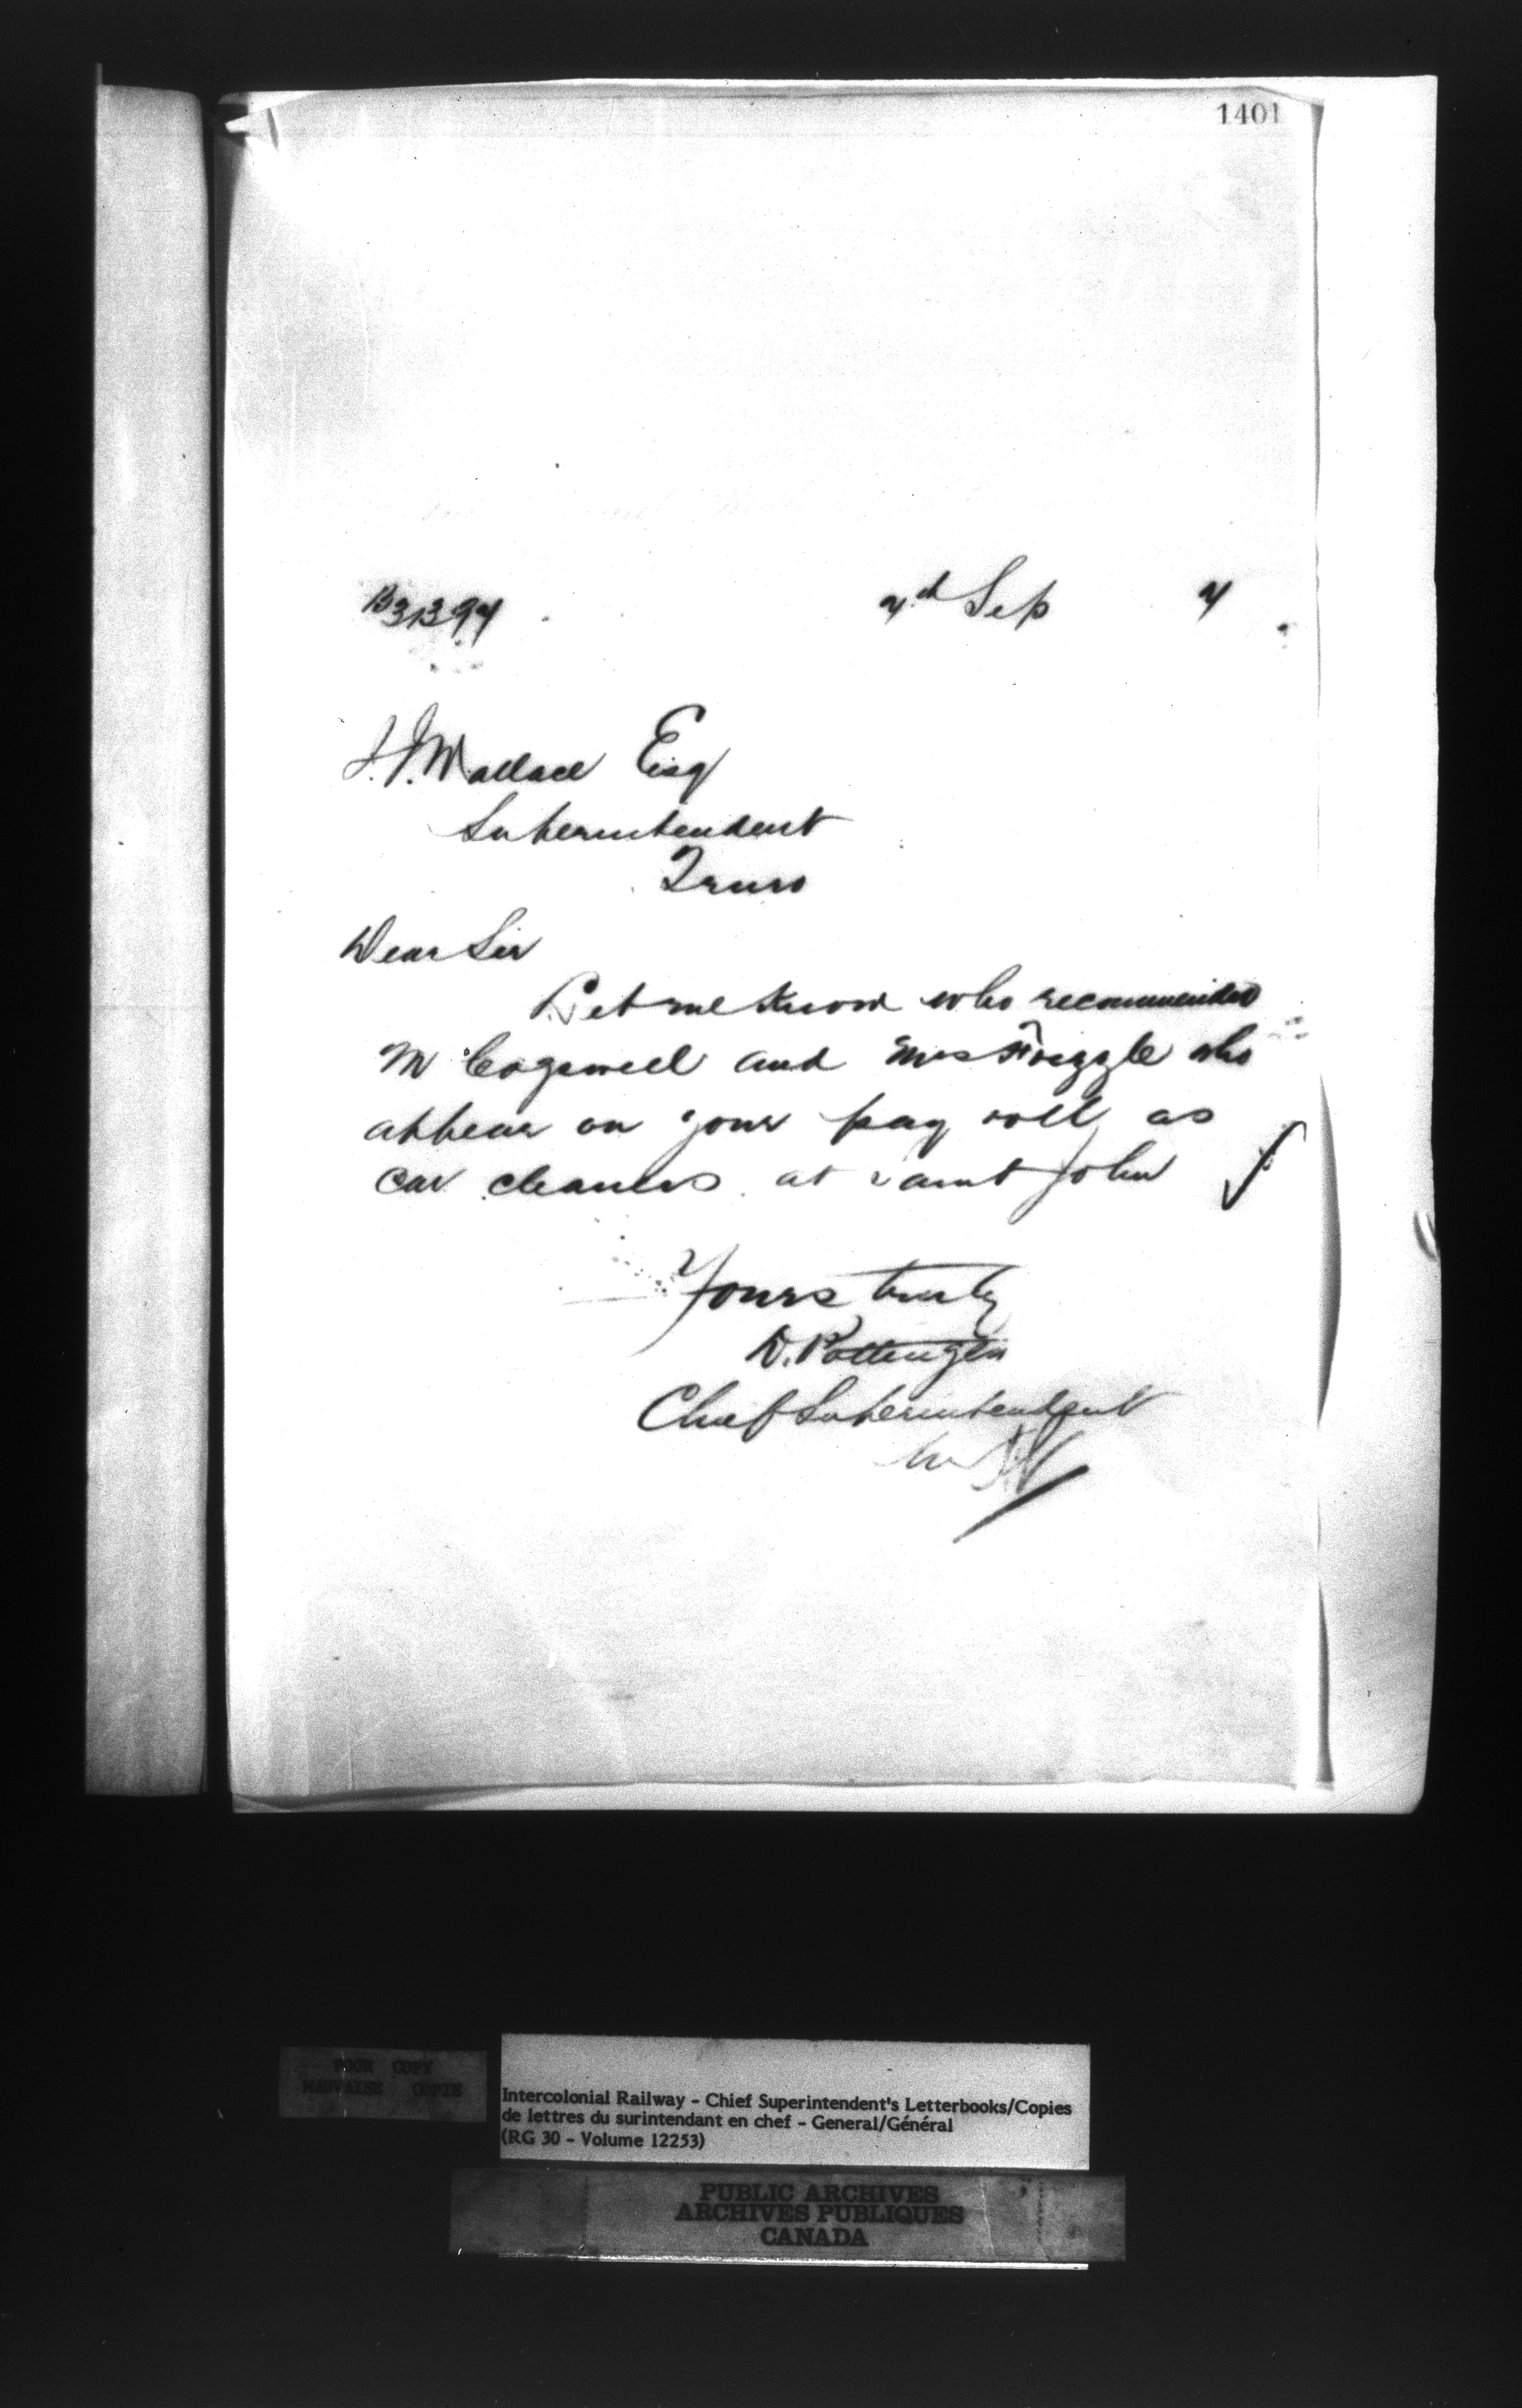 1401
B31394
2nd Sep
J.J. Wallace Esq
Superintendent
Truro
Dear Sir
Let me know who recommended
M Cogswell and Mrs who
appear on your pay roll as
car cleaners at Saint John
Yours truly
D. Pottinger
Chief Superintendent
POOR COPY
MAUVAISE COPIE
Intercolonial Railway - Chief Superintendent's Letterbooks/Copies
de lettres du surintendant en chef - General/Général
(RG 30 - Volume 12253)
PUBLIC ARCHIVES
ARCHIVES PUBLIQUES
CANADA